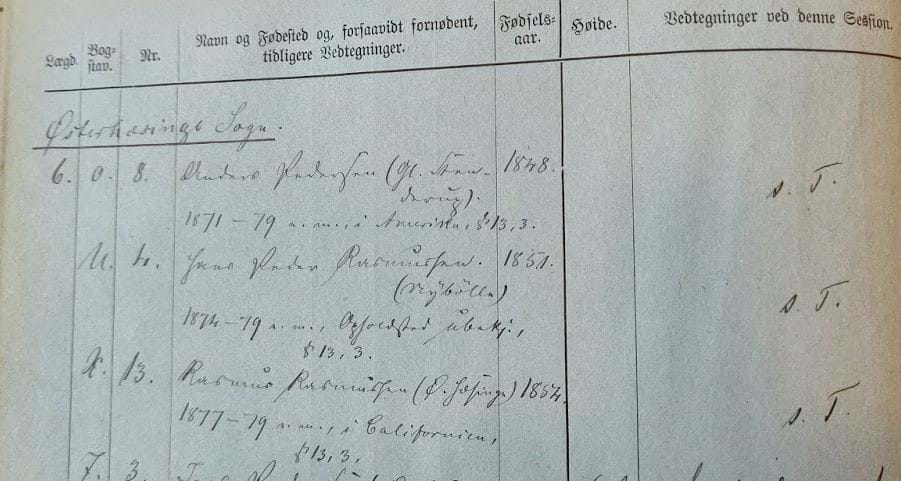 Lægd. Bog-stav. Nr. Navn og Fødested og, forsaavidt fornødent, tidligere Vedtegninger. Fødsels-aar. Høide. Vedtegninger ved denne Session.
Østerhæsinge Sogn.
6. O. 8. Anders Pedersen (Gl. Sten- 1848.
derup). s. T.
1871-79 e. m., i Amerika, § 13, 3.
U. 4. Hans Peder Rasmussen. 1851.
(Nybölle) s. T.
1874-79 e. m., Opholdsted ubekj.,
§ 13, 3.
X. 13. Rasmus Rasmussen (Ø. Hæsinge) 1854.
1877-79 e. m., i Californien, s. T.
§ 13, 3.
7. 3.